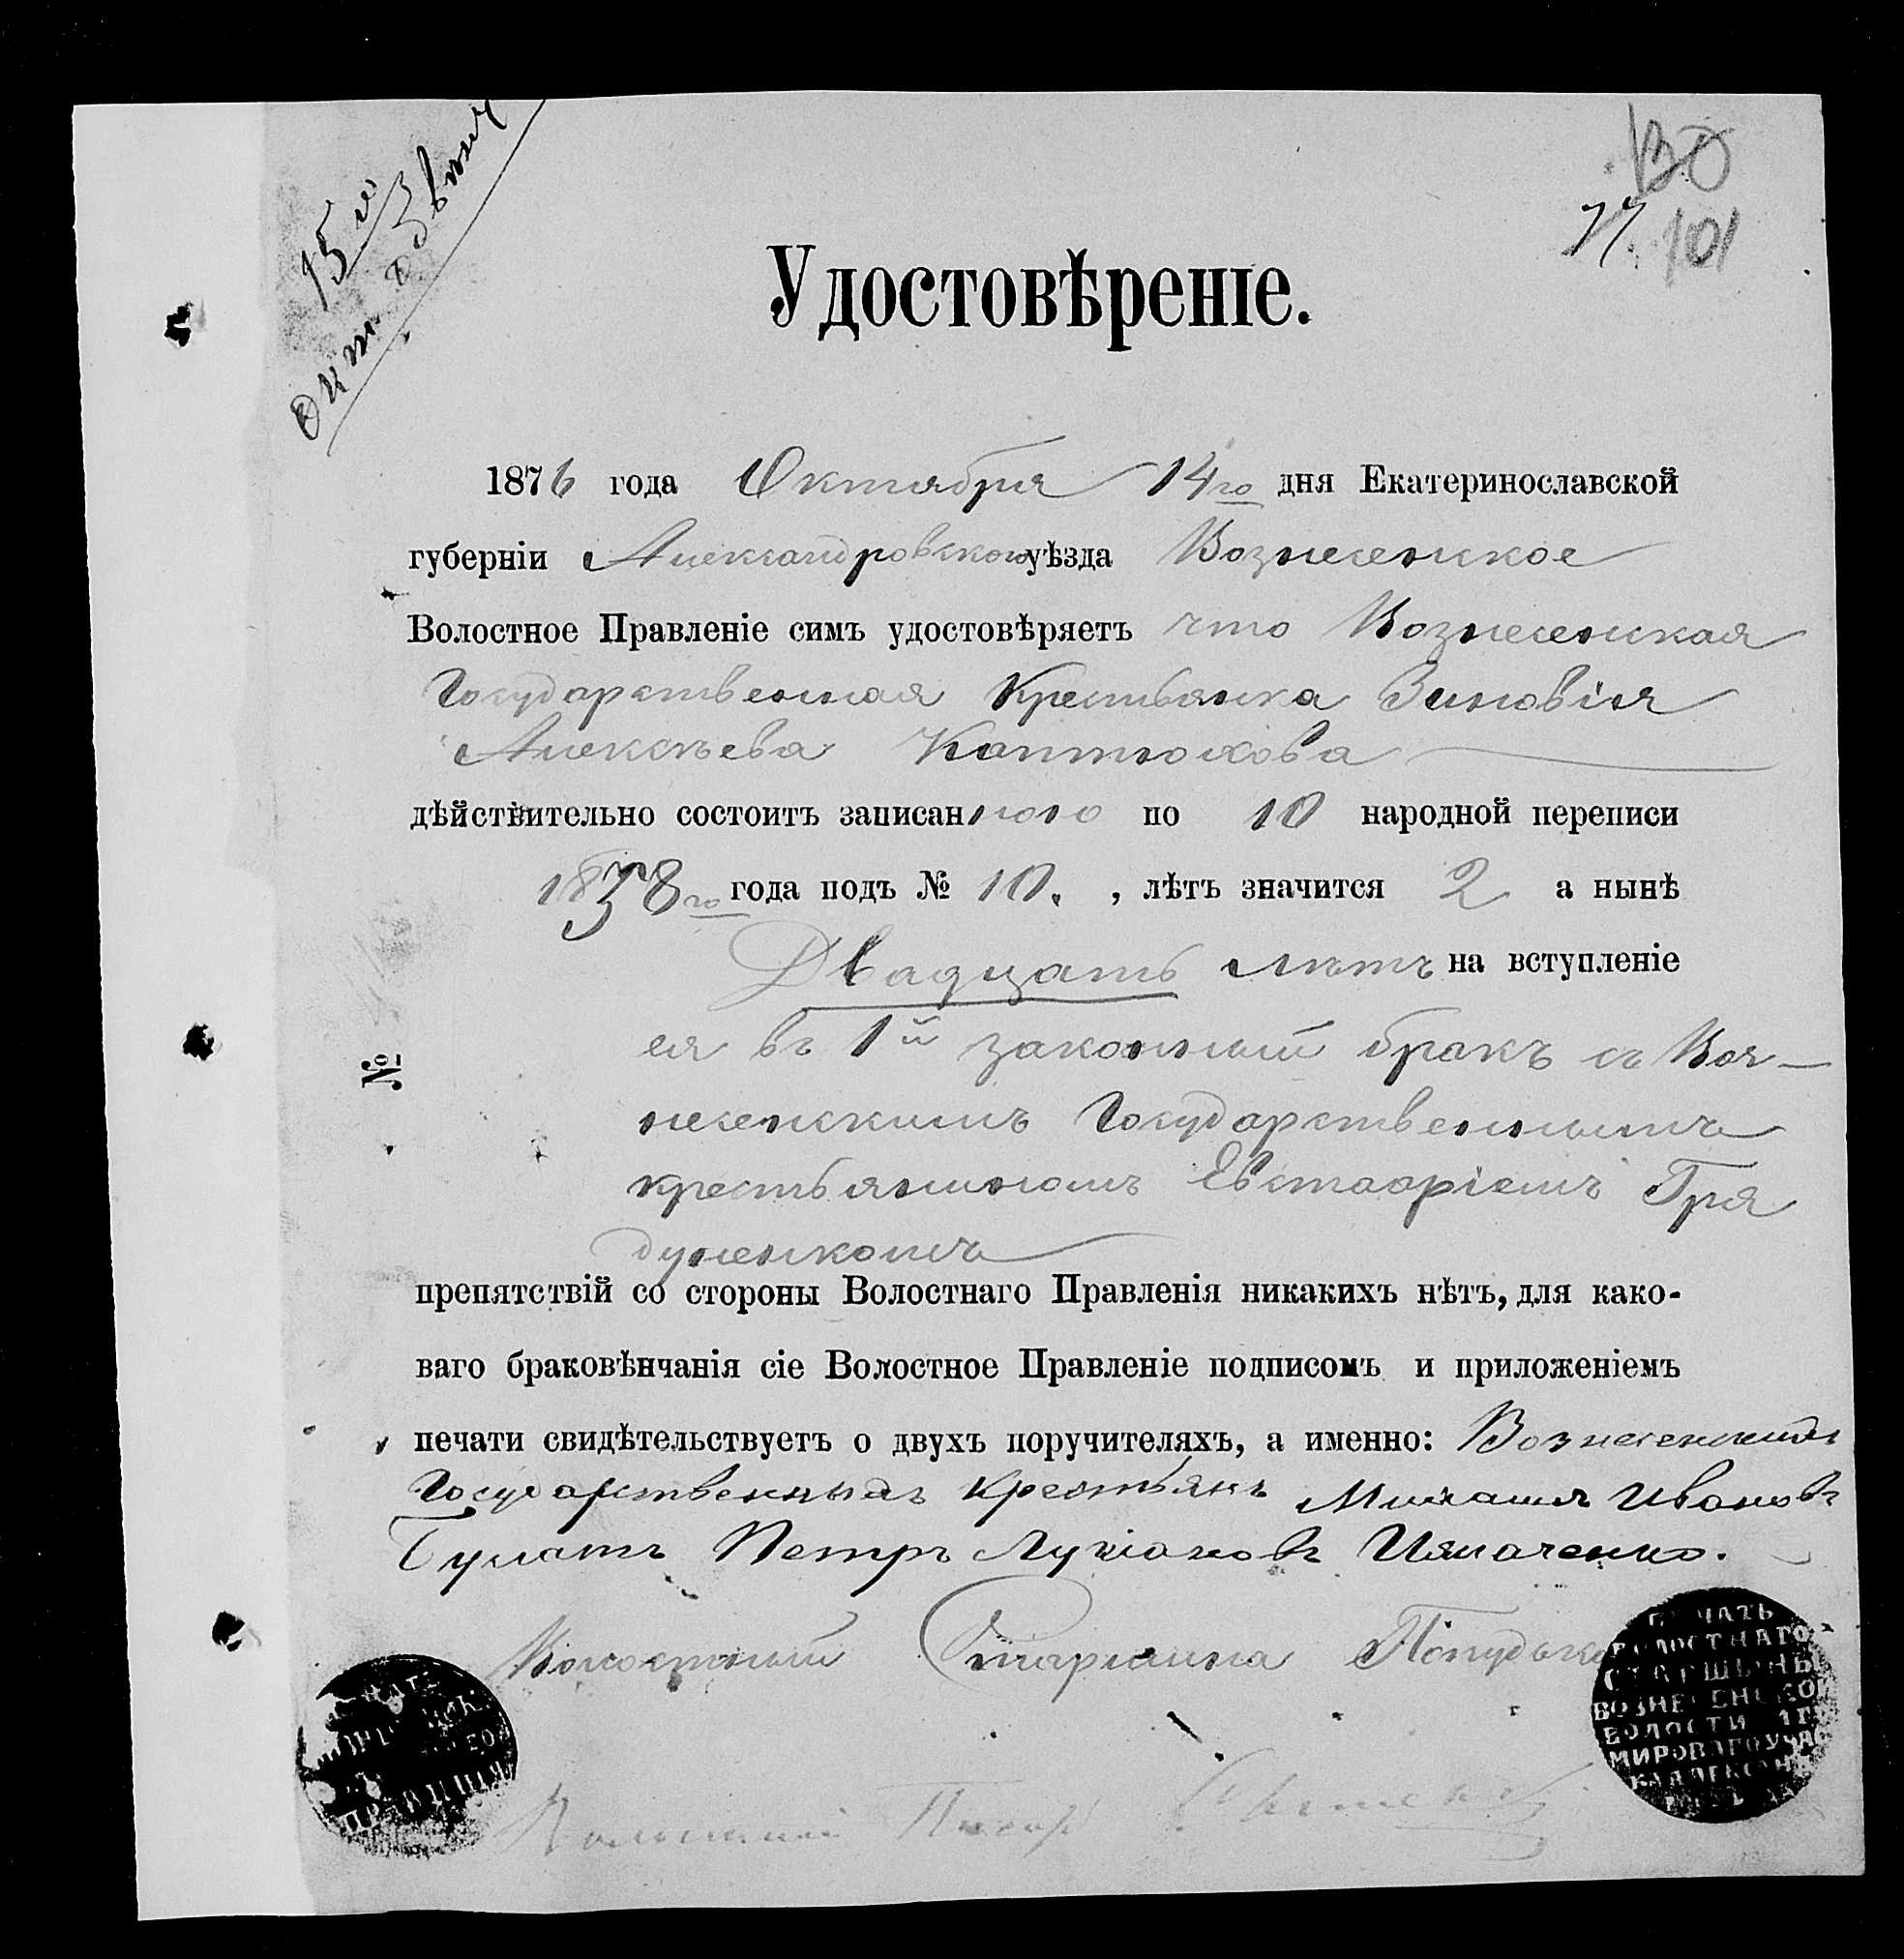 15го
окт.
130
77. 101
Удостовѣреніе.
1876 года Октября 14го дня Екатеринославской
губерніи Александровского уѣзда Вознесенское
Волостное Правленіе симъ удостовѣряетъ что Вознесенская
Государственная Крестьянка Зиновія
Алексѣева Коптюхова
дѣйствительно состоитъ записанною по 10 народной переписи
1858го года подъ № 10. , лѣтъ значится 2 а нынѣ
Двадцать лѣтъ на вступленіе
ея въ 1й законный бракъ съ Воз-
несенскимъ Государственнымъ
крестьяниномъ Евстафіемъ Гря
дуненкомъ
№
препятствій со стороны Волостнаго Правленія никакихъ нѣтъ, для како-
ваго браковѣнчанія сіе Волостное Правленіе подписомъ и приложеніемъ
печати свидѣтельствуетъ о двухъ поручителяхъ, а именно: Вознесенскихъ
Государственныхъ Крестьянъ Михаилъ Ивановъ
Булатъ Петръ Лукіановъ
Волостный Старшина
ПЕЧАТЬ
ВОЛОСТНАГО
СТАРШИНЫ
ВОЗНЕСЕНСКОЙ
ВОЛОСТИ 1ГО
МИРОВАГО УЧАС
Волостной Писарь